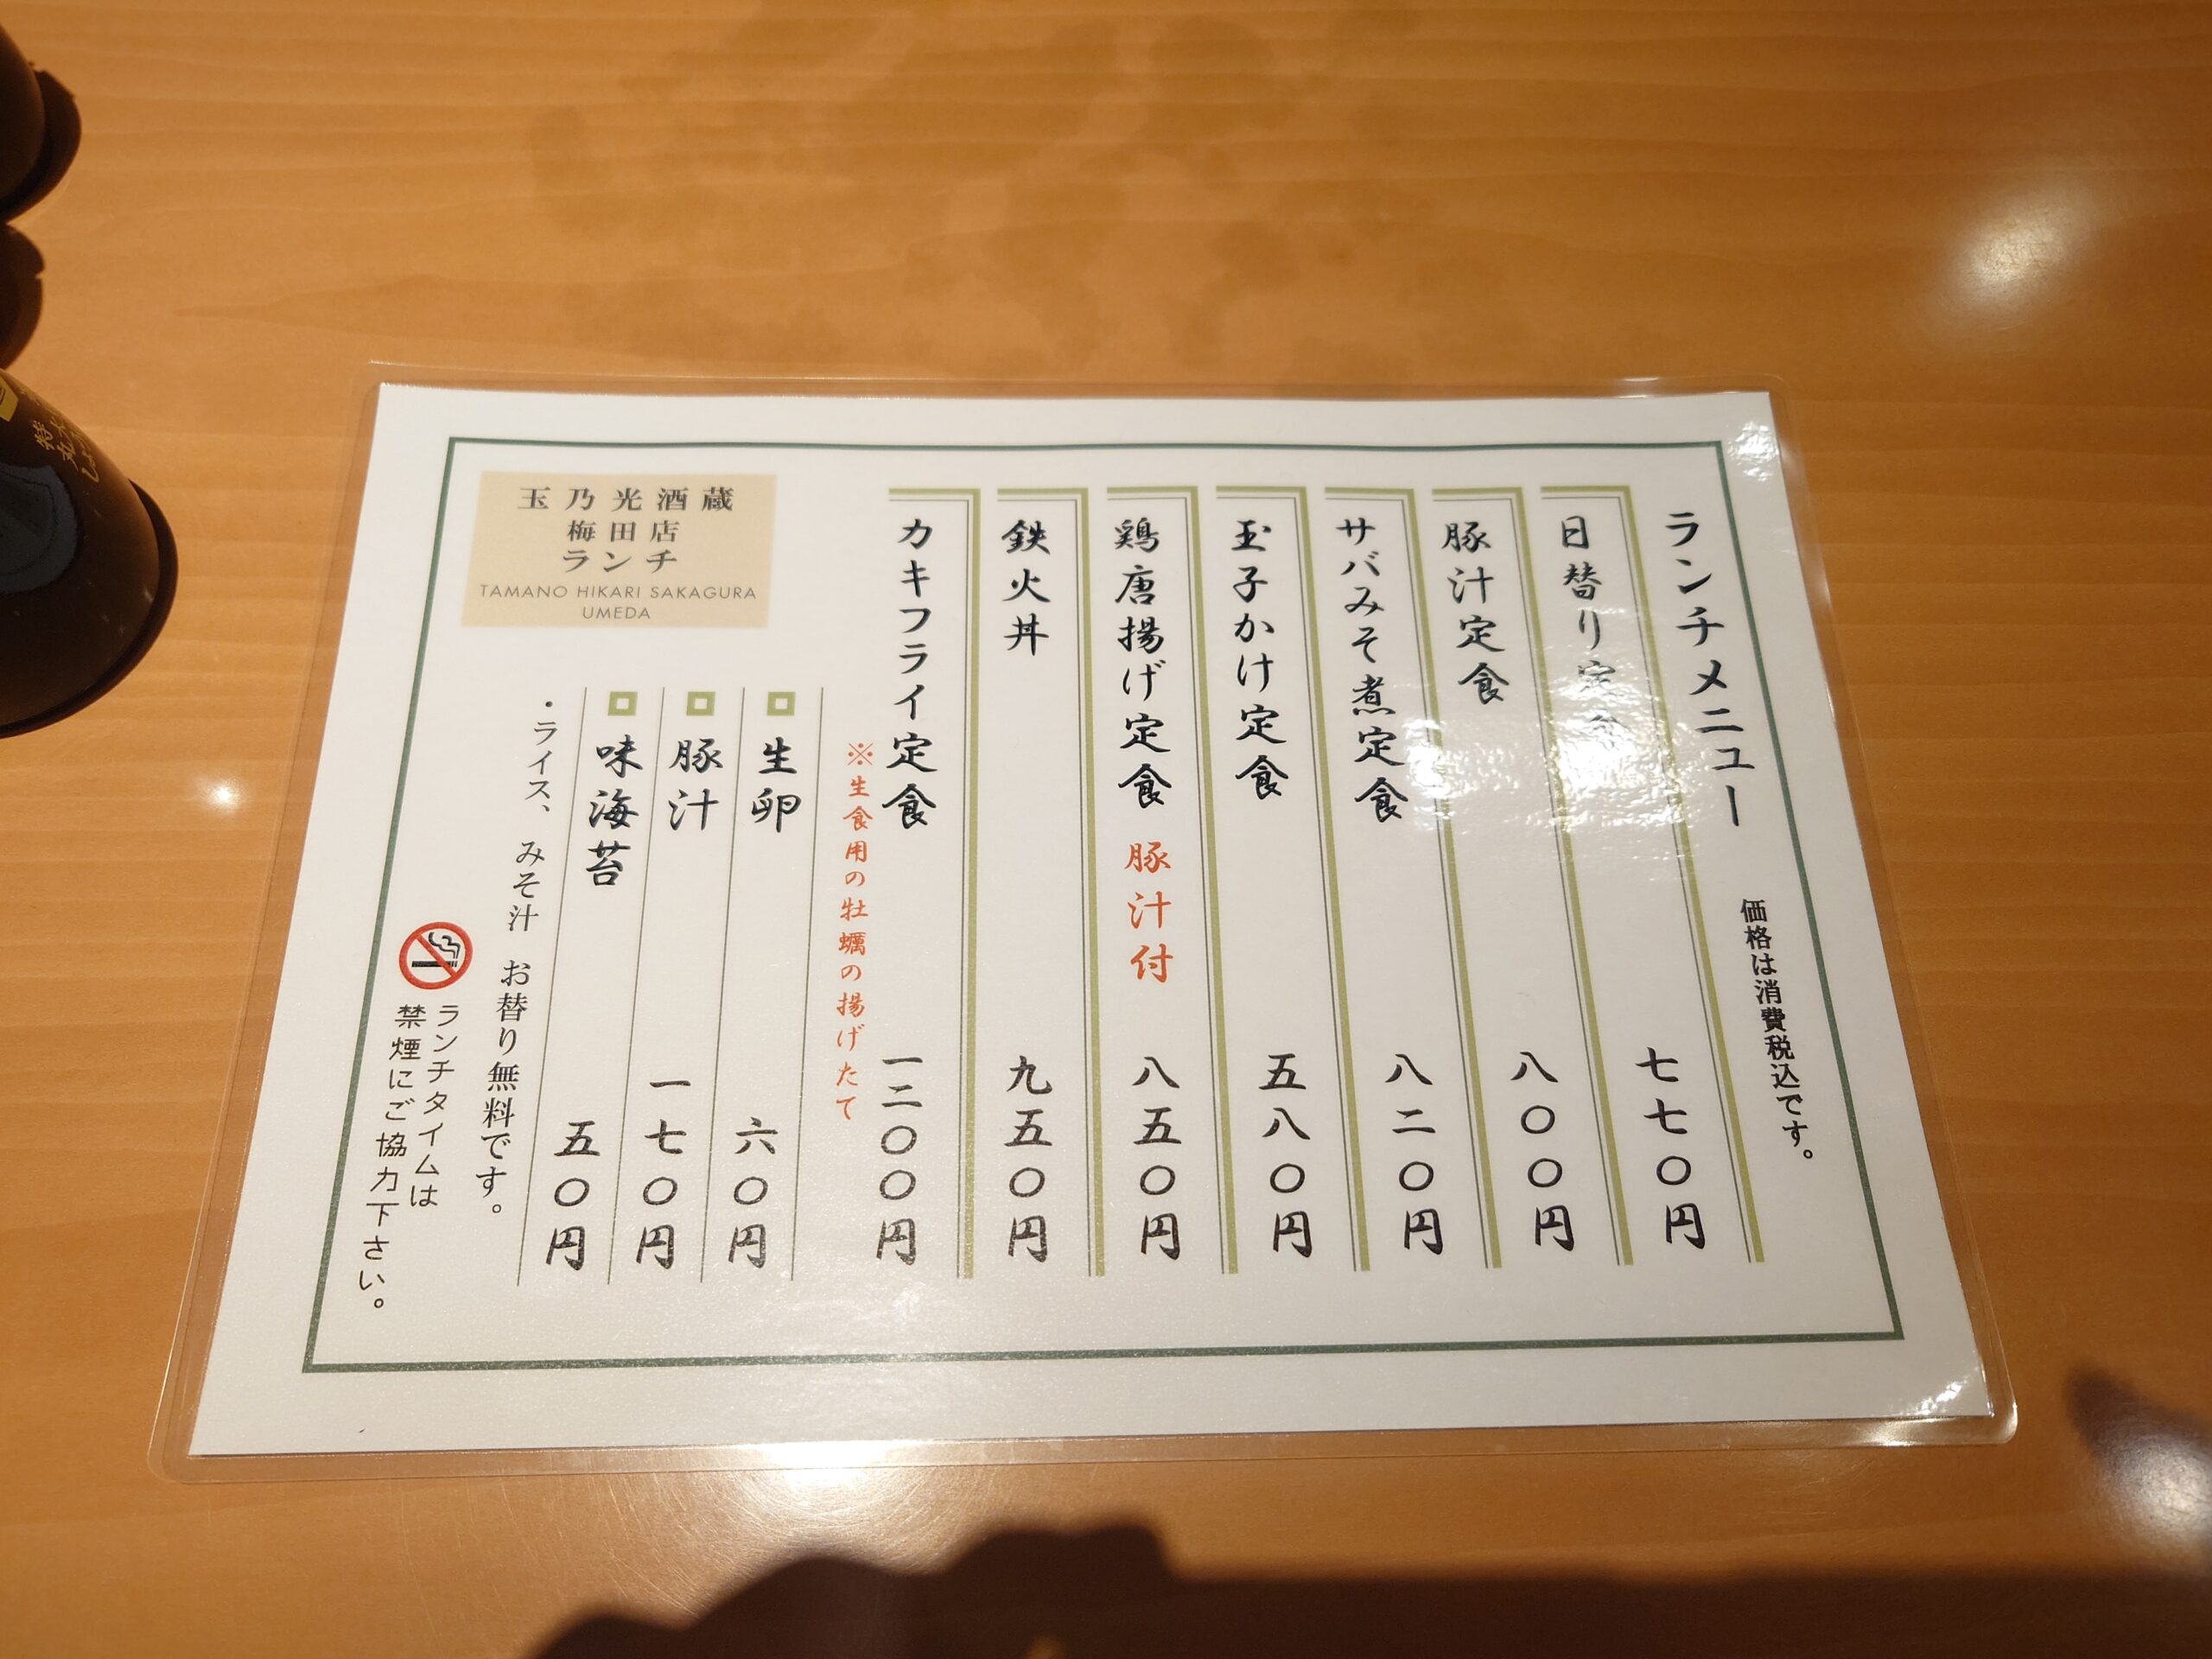 ランチメニュー
価格は消費税込です。
日替り定食 七七〇円
豚汁定食 八〇〇円
サバみそ煮定食 八二〇円
玉子かけ定食 五八〇円
鶏唐揚げ定食 豚汁付 八五〇円
鉄火丼 九五〇円
カキフライ定食 一二〇〇円
※生食用の牡蠣の揚げたて
生卵 六〇円
豚汁 一七〇円
味海苔 五〇円
・ライス、みそ汁 お替り無料です。
玉乃光酒蔵
梅田店
ランチ
TAMANO HIKARI SAKAGURA
UMEDA
ランチタイムは
禁煙にご協力下さい。